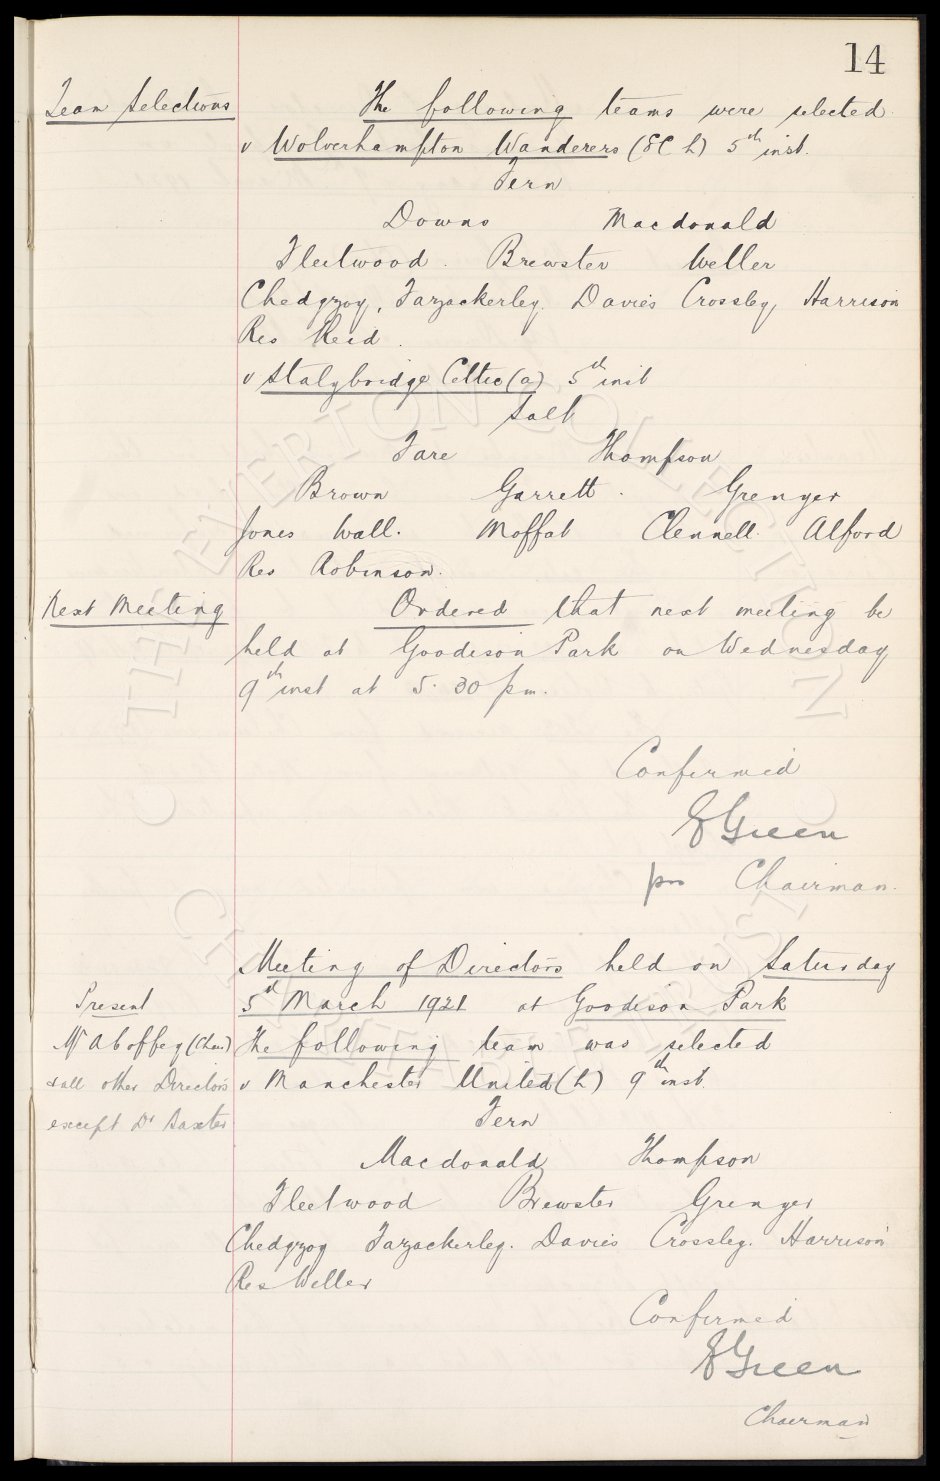 14
Team Selections
The following teams were selected
v Wolverhampton Wanderers (EC h) 5th inst.
Fern
Downs Macdonald
Fleetwood. Brewster Weller
Chedgzoy, Fazackerley. Davies Crossley, Harrison
Res Reid.
v Stalybridge Celtic (a) 5th inst
Salt
Fare Thompson
Brown Garrett. Grenyer
Jones Wall. Moffat Clennell. Alford
Res Robinson.
Next Meeting
Ordered that next meeting be
held at Goodison Park on Wednesday
9th inst at 5.30 pm.
Confirmed
E Green
pro Chairman.
Meeting of Directors held on Saturday
5th March 1921 at Goodison Park
Present
Mr A Coffey (Chair)
& all other Directors
except Dr Baxter
The following team was selected
v Manchester United (h) 9th inst.
Fern
Macdonald Thompson
Fleetwood Brewster Grenyer
Chedgzoy Fazackerley. Davies Crossley. Harrison
Res Weller
Confirmed
E Green
Chairman
THE EVERTON COLLECTION
CHARITABLE TRUST